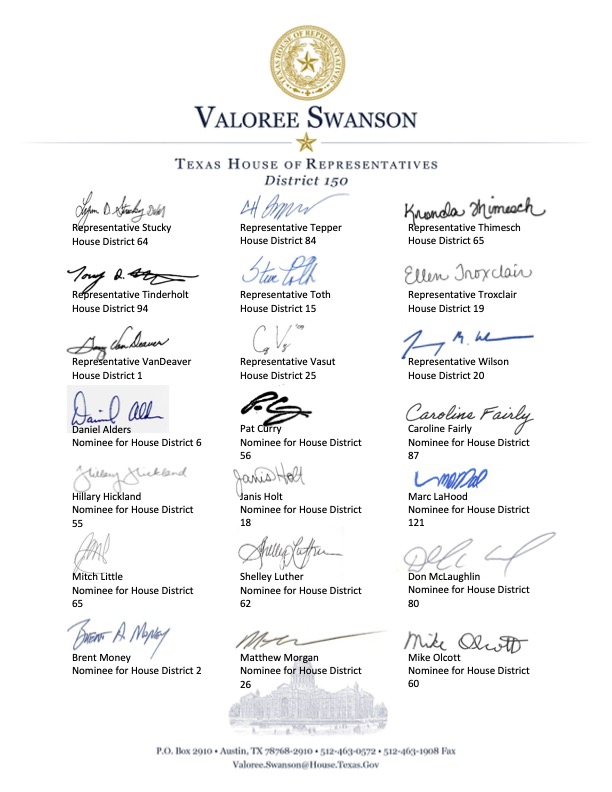 TEXAS HOUSE OF REPRESENTATIVES
VALOREE SWANSON
TEXAS HOUSE OF REPRESENTATIVES
District 150
Representative Stucky
House District 64
Representative Tepper
House District 84
Kronda Thimesch
Representative Thimesch
House District 65
Representative Tinderholt
House District 94
Steve Toth
Representative Toth
House District 15
Ellen Troxclair
Representative Troxclair
House District 19
Gary VanDeaver
Representative VanDeaver
House District 1
Representative Vasut
House District 25
Representative Wilson
House District 20
Daniel Alders
Nominee for House District 6
Pat Curry
Nominee for House District
56
Caroline Fairly
Caroline Fairly
Nominee for House District
87
Hillary Hickland
Hillary Hickland
Nominee for House District
55
Janis Holt
Janis Holt
Nominee for House District
18
Marc LaHood
Nominee for House District
121
Mitch Little
Nominee for House District
65
Shelley Luther
Shelley Luther
Nominee for House District
62
Don McLaughlin
Nominee for House District
80
Brent A. Money
Brent Money
Nominee for House District 2
Matthew Morgan
Nominee for House District
26
Mike Olcott
Mike Olcott
Nominee for House District
60
P.O. Box 2910 • Austin, TX 78768-2910 • 512-463-0572 • 512-463-1908 Fax
Valoree.Swanson@House.Texas.Gov